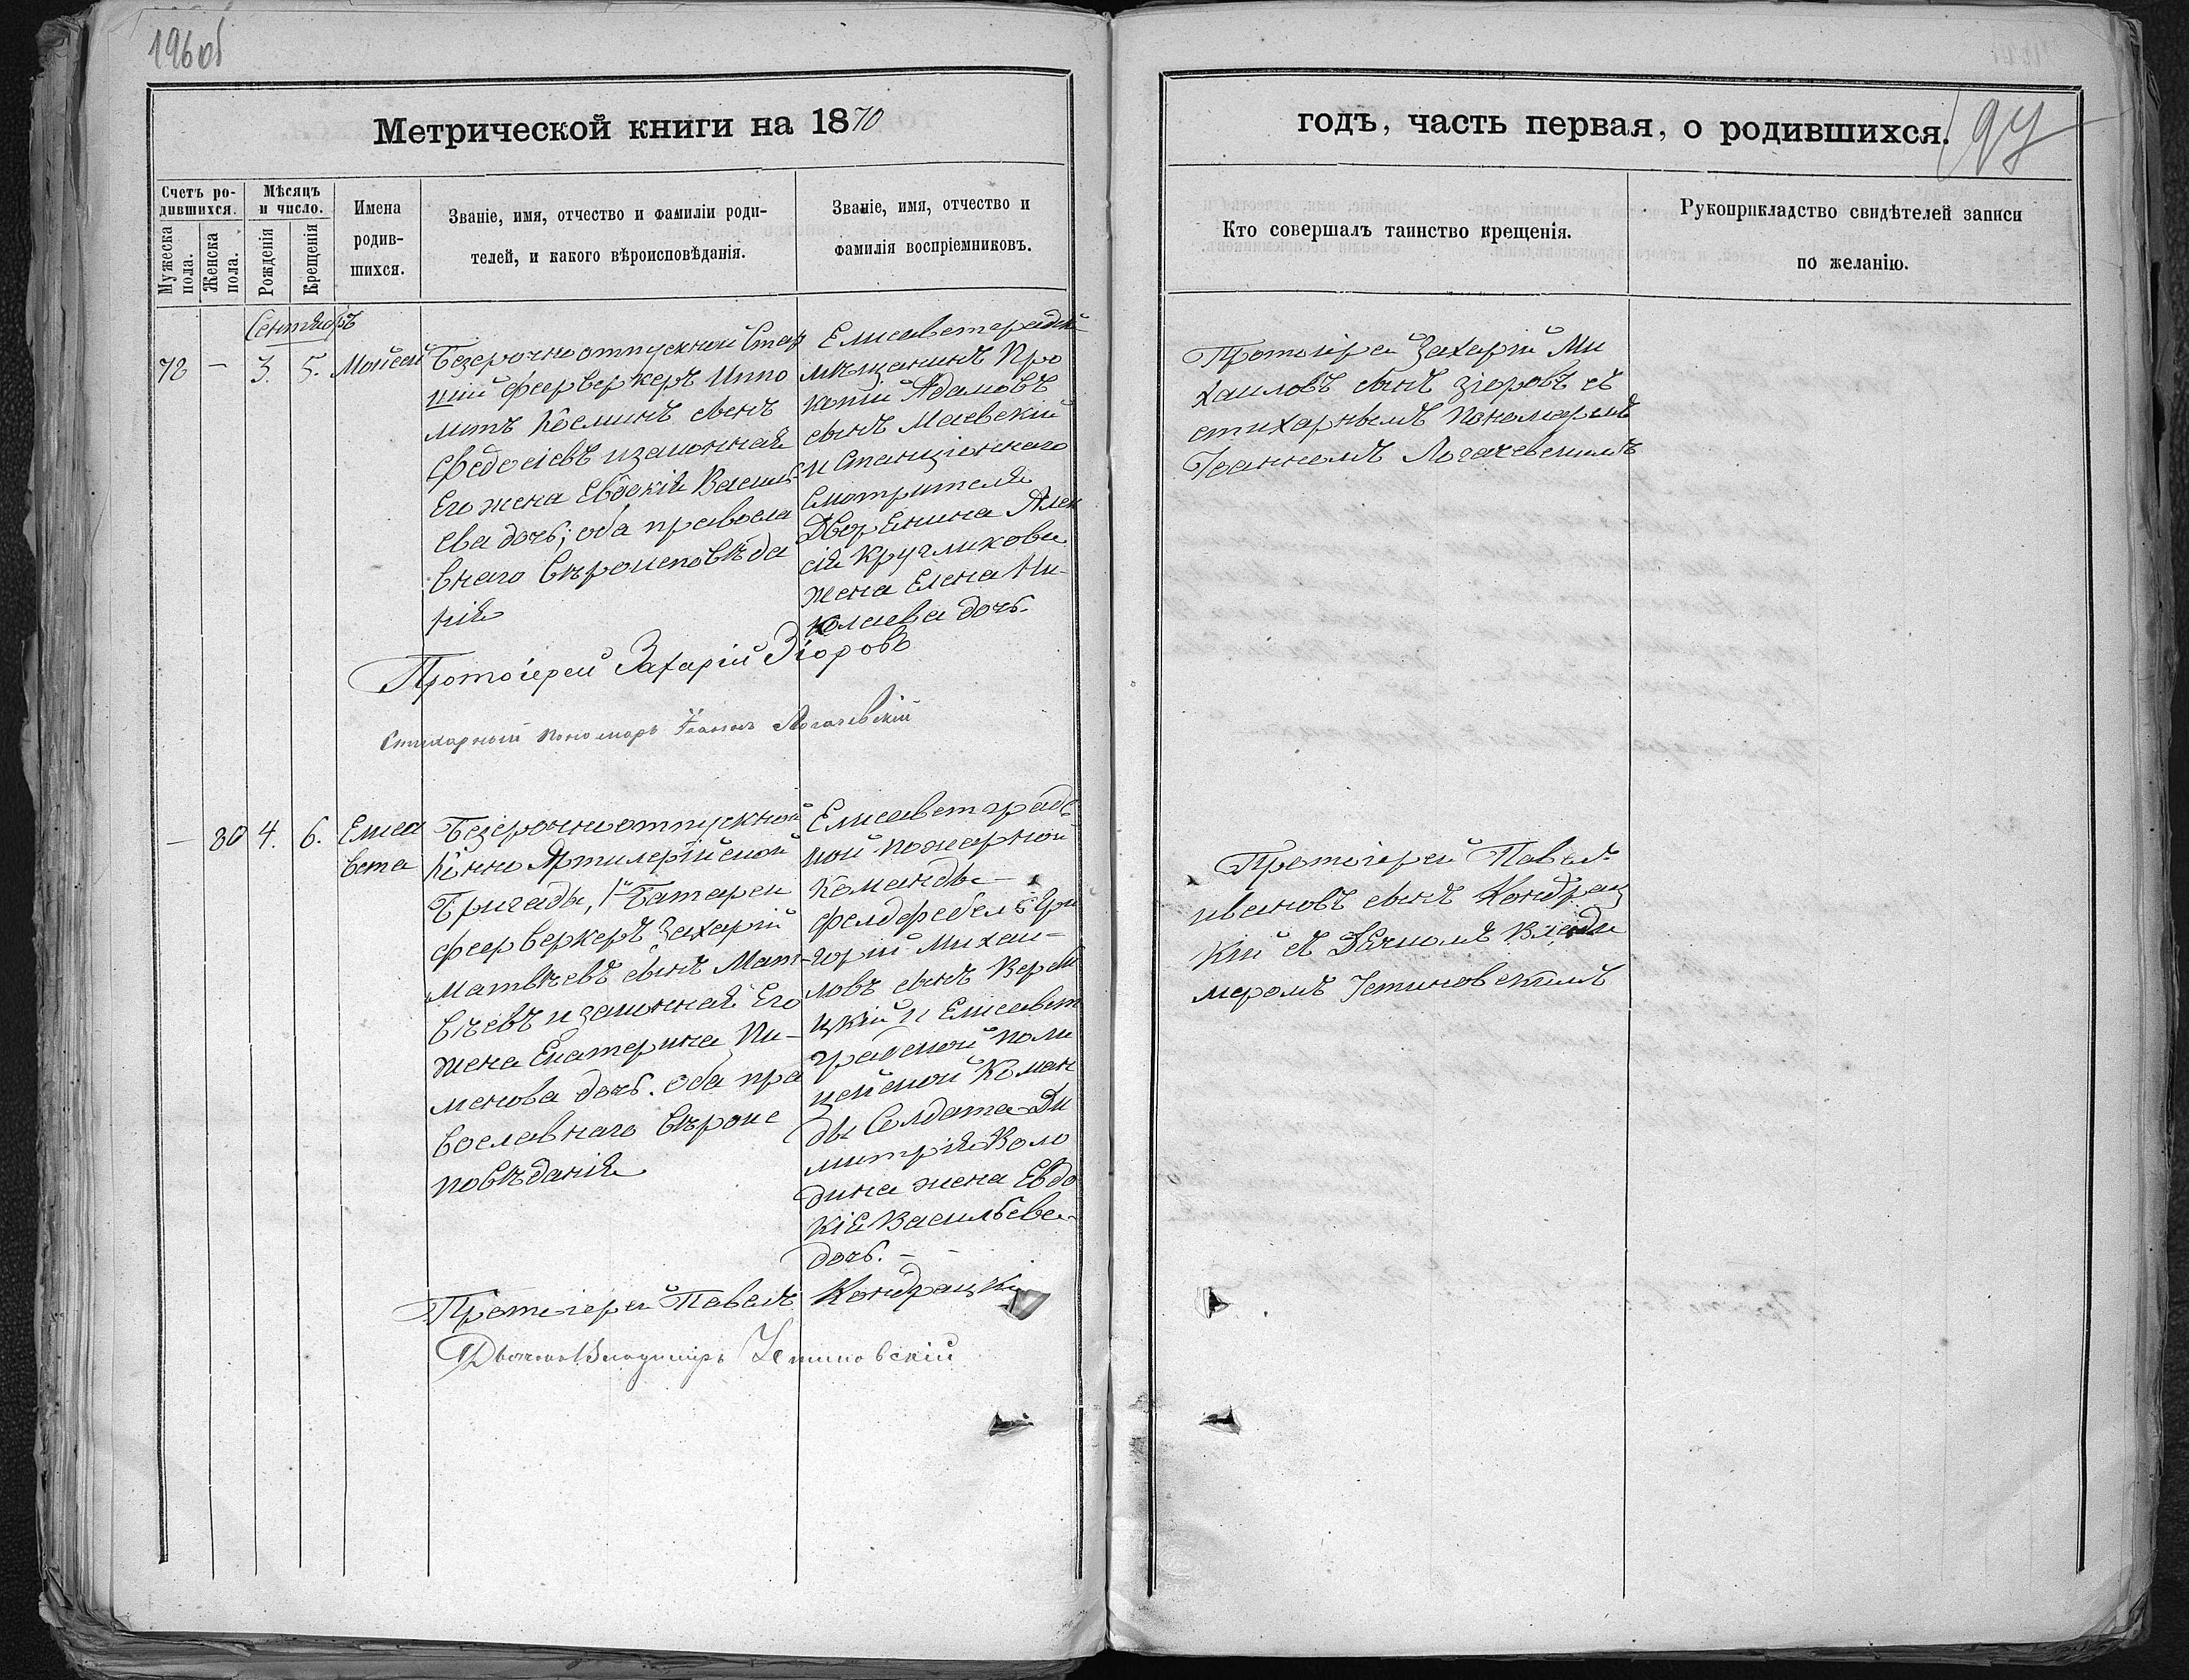 196 об
Метрической книги на 1870
годъ, часть первая, о родившихся.
197
Счетъ ро-
дившихся.
Мужеска
пола.
Женска
пола.
Мѣсяцъ
и число.
Рожденія
Крещенія
Имена
родив-
шихся.
Званіе, имя, отчество и фамиліи роди-
телей, и какого вѣроисповѣданія.
Званіе, имя, отчество и
фамилія воспріемниковъ.
Кто совершалъ таинство крещенія.
Рукоприкладство свидѣтелей записи
по желанію.
Сентябръ
72 – 3. 5. Мойсей
Безсрочноотпускной Стар
шій фейерверкеръ Иппо
литъ Косминъ сынъ
Ѳедосіевъ изаконная
Его жена Евдокія Василь
ева дочь; оба правосла
внаго вѣроисповѣда
нія
Елисаветградскій
мѣщанинъ Про
копій Адамовъ
сынъ Маевскій
и Станціоннаго
Смотрителя
Дворянина Алек
сія Кругликова
жена Елена Ни-
колаева дочь.
Протоіерей Захарій Ми
хаиловъ сынъ Зіоровъ съ
стихарнымъ пономаремъ
Іоанномъ Логачевскимъ
Протоіерей Захарій Зіоровъ
Стихарный пономарь Іоаннъ Логачевскій
– 80 4. 6. Елиса
вета
Безсрочноотпускной
Конно Артилерійской
Бригады, 1й Батареи
фейерверкеръ Захарій
Матвѣевъ сынъ Мат-
вѣевъ изаконная Его
жена Екатерина Пи-
менова дочь. оба пра
вославнаго вѣроис
повѣданія
Елисаветградс
кой пожарной
Команды –
фелдфебель Гри
горій Михаи-
ловъ сынъ
и Елисавет
градской поли
цейской Коман
ды Солдата Ди
митрія Воло
дина жена Евдо
кія Васильева
дочь. –
Протоіерей Павелъ
Ивановъ сынъ Кондрац
кій съ Дьячкомъ Влади
меромъ Устиновскимъ
Протоіерей Павелъ Кондрацкій
Дьячокъ Владимиръ Устиновскій